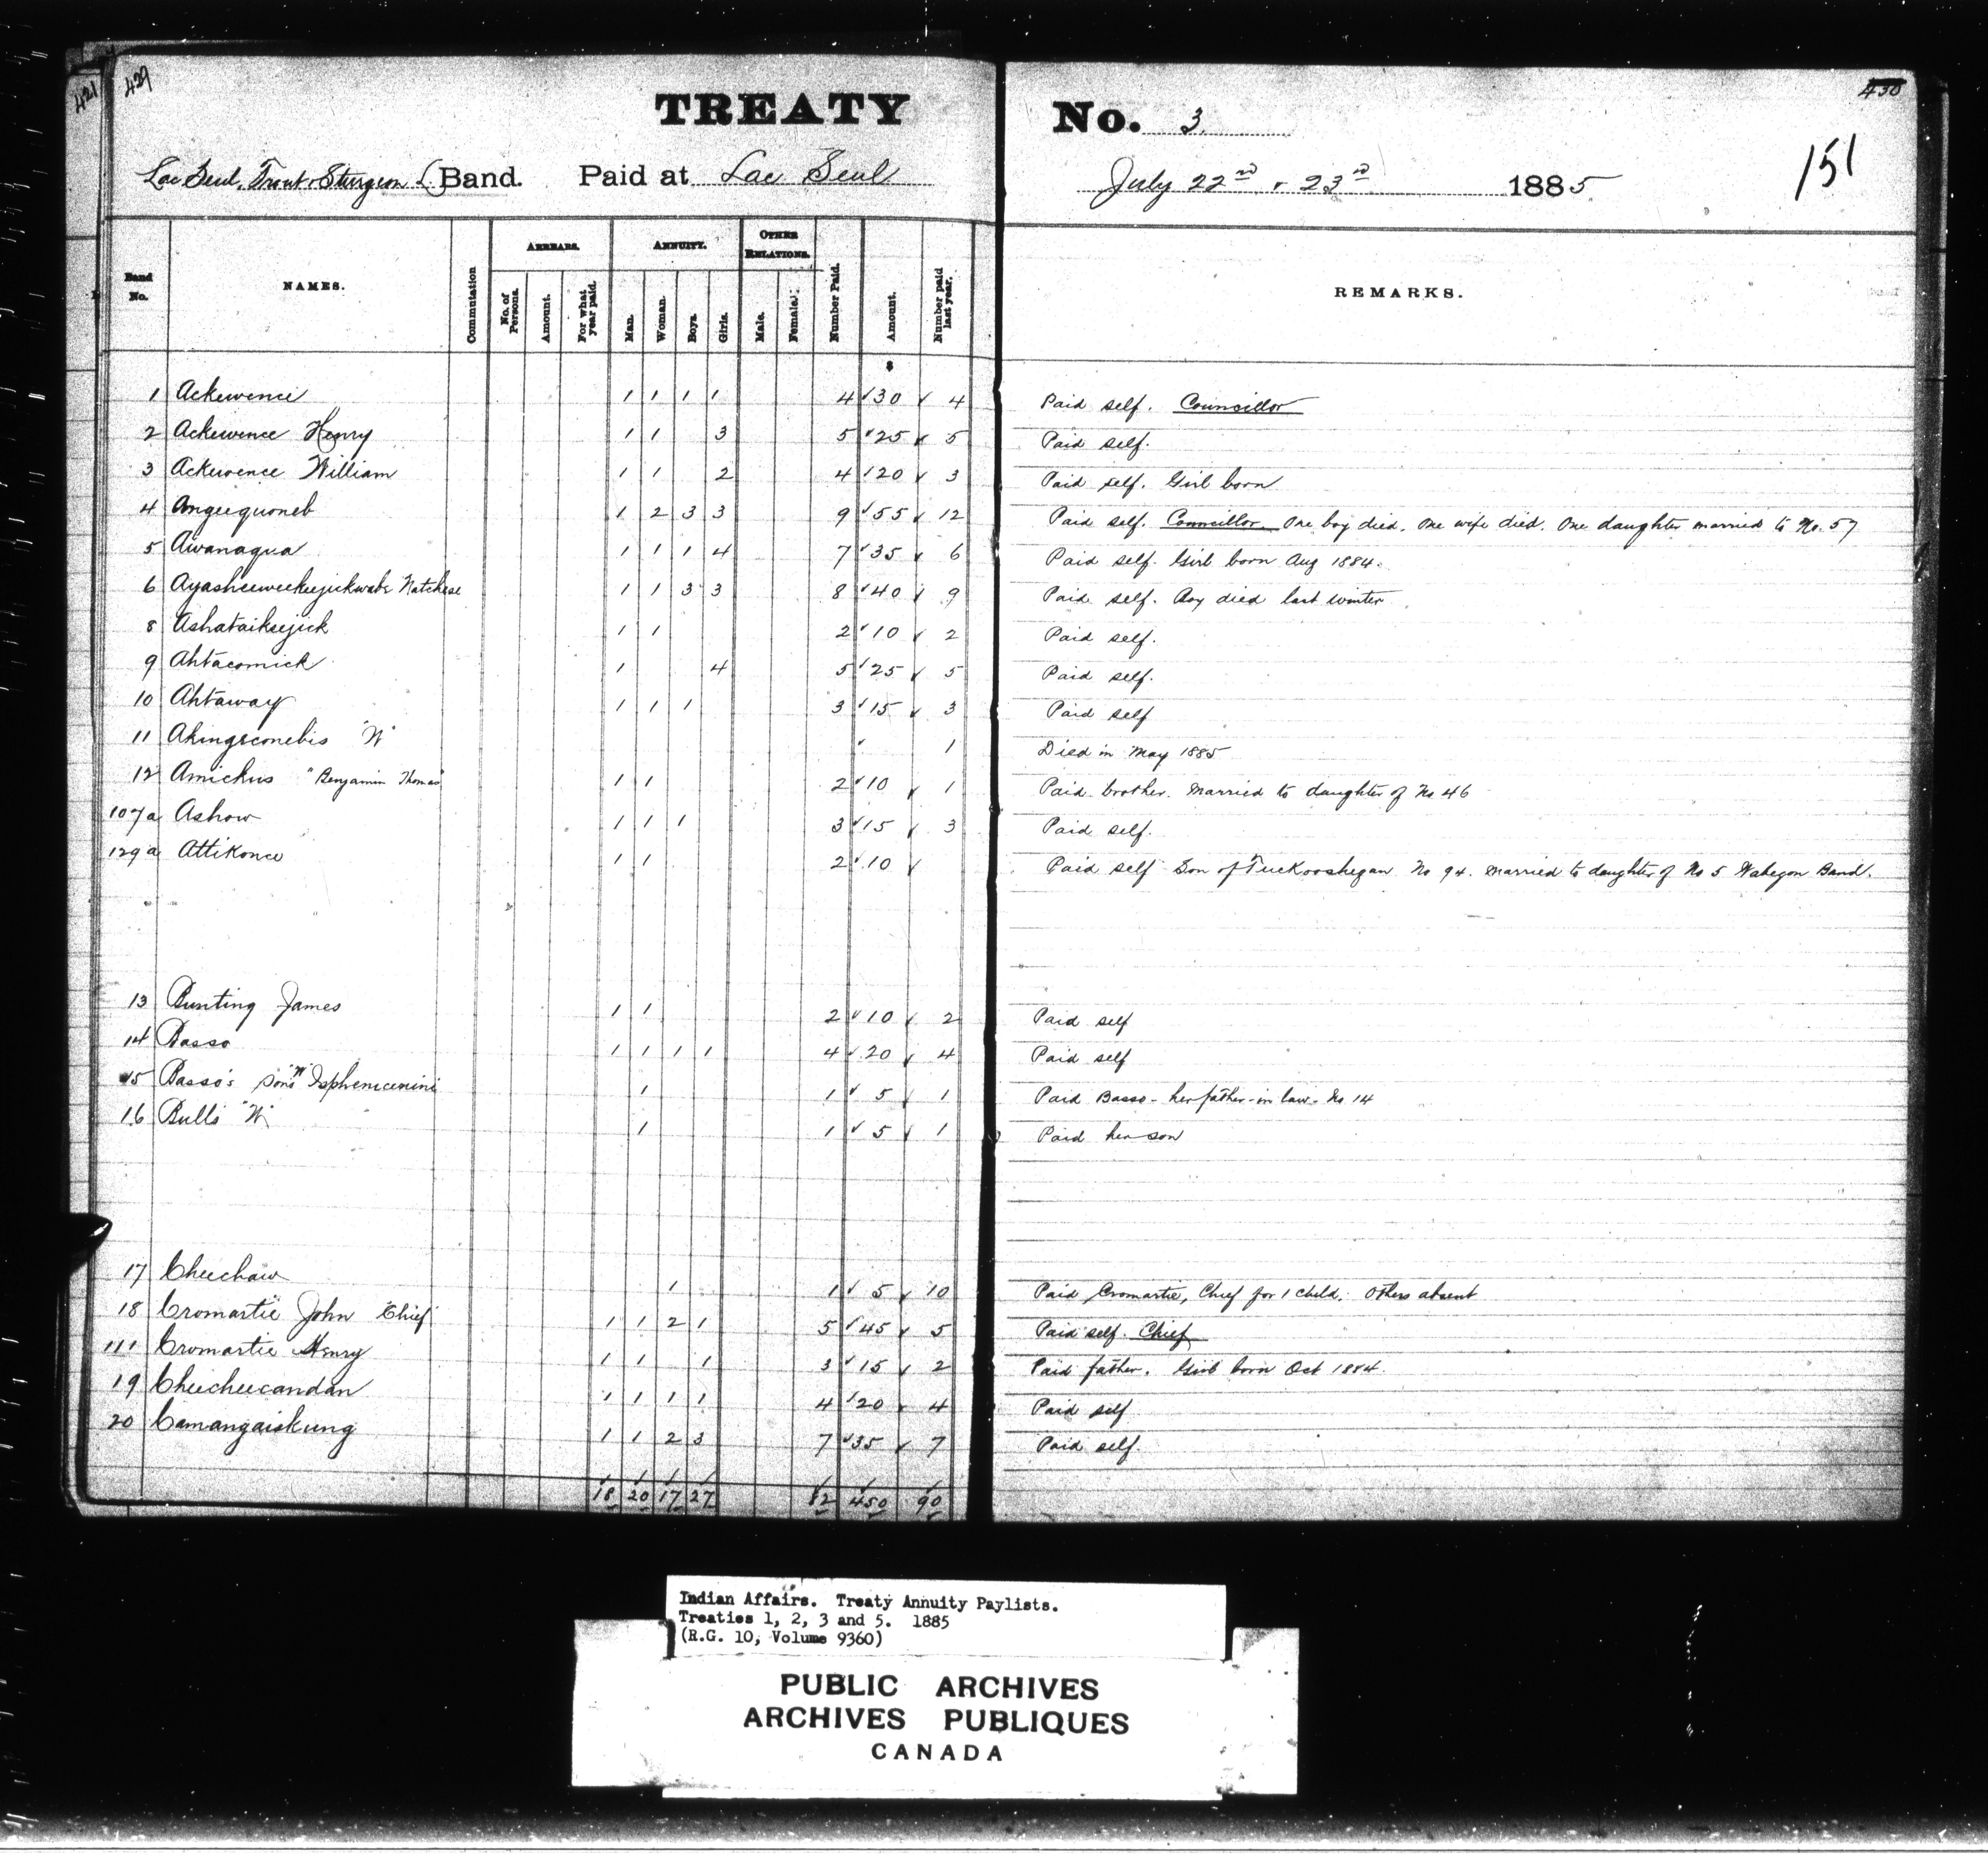 421 429 430
TREATY No. 3
151
Lac Seul, Trout, Sturgeon L Band. Paid at Lac Seul July 22nd & 23rd 1885
Band No. NAMES. Commutation ARREARS. No. of Persons. Amount. For what year paid. ANNUITY. Man. Woman. Boys. Girls. OTHER RELATIONS. Male. Female. Number Paid. Amount. Number paid last year. REMARKS.
$
1 Ackewence 1 1 1 1 4 30 4 Paid self. Councillor
2 Ackewence Henry 1 1 3 5 25 5 Paid self.
3 Ackewence William 1 1 2 4 20 3 Paid self. Girl born
4 Angeequoneb 1 2 3 3 9 55 12 Paid self. Councillor. One boy died. One wife died. One daughter married to No. 57
5 Awanaqua 1 1 1 4 7 35 6 Paid self. Girl born Aug 1884.
6 Ayasheeweekeejickwabe Natchese 1 1 3 3 8 40 9 Paid self. Boy died last winter
8 Ashataiksejick 1 1 2 10 2 Paid self.
9 Ahtacomick 1 4 5 25 5 Paid self.
10 Ahtaway 1 1 1 3 15 3 Paid self
11 Akingeconebis "W" 1 Died in May 1885
12 Amickus "Benjamin Thomas" 1 1 2 10 1 Paid brother. Married to daughter of No 46
107a Ashow 1 1 1 3 15 3 Paid self.
129a Attikonce 1 1 2 10 Paid self Son of Tuckooshegan No 94. Married to daughter of No 5 Wabegon Band.
13 Bunting James 1 1 2 10 2 Paid self
14 Basso 1 1 1 1 4 20 4 Paid self
15 Basso's Sons "W" Isphemeenini 1 1 5 1 Paid Basso - her father-in-law - No 14
16 Bulls "W" 1 1 5 1 Paid her son
17 Cheechaw 1 1 5 10 Paid Cromartie, Chief for 1 child. Others absent
18 Cromartie John Chief 1 1 2 1 5 45 5 Paid self. Chief
111 Cromartie Henry 1 1 1 3 15 2 Paid father. Girl born Oct 1884.
19 Cheecheecandan 1 1 1 1 4 20 4 Paid self
20 Camangaiskung 1 1 2 3 7 35 7 Paid self.
18 20 17 27 82 450 90
Indian Affairs. Treaty Annuity Paylists.
Treaties 1, 2, 3 and 5. 1885
(R.G. 10, Volume 9360)
PUBLIC ARCHIVES
ARCHIVES PUBLIQUES
CANADA